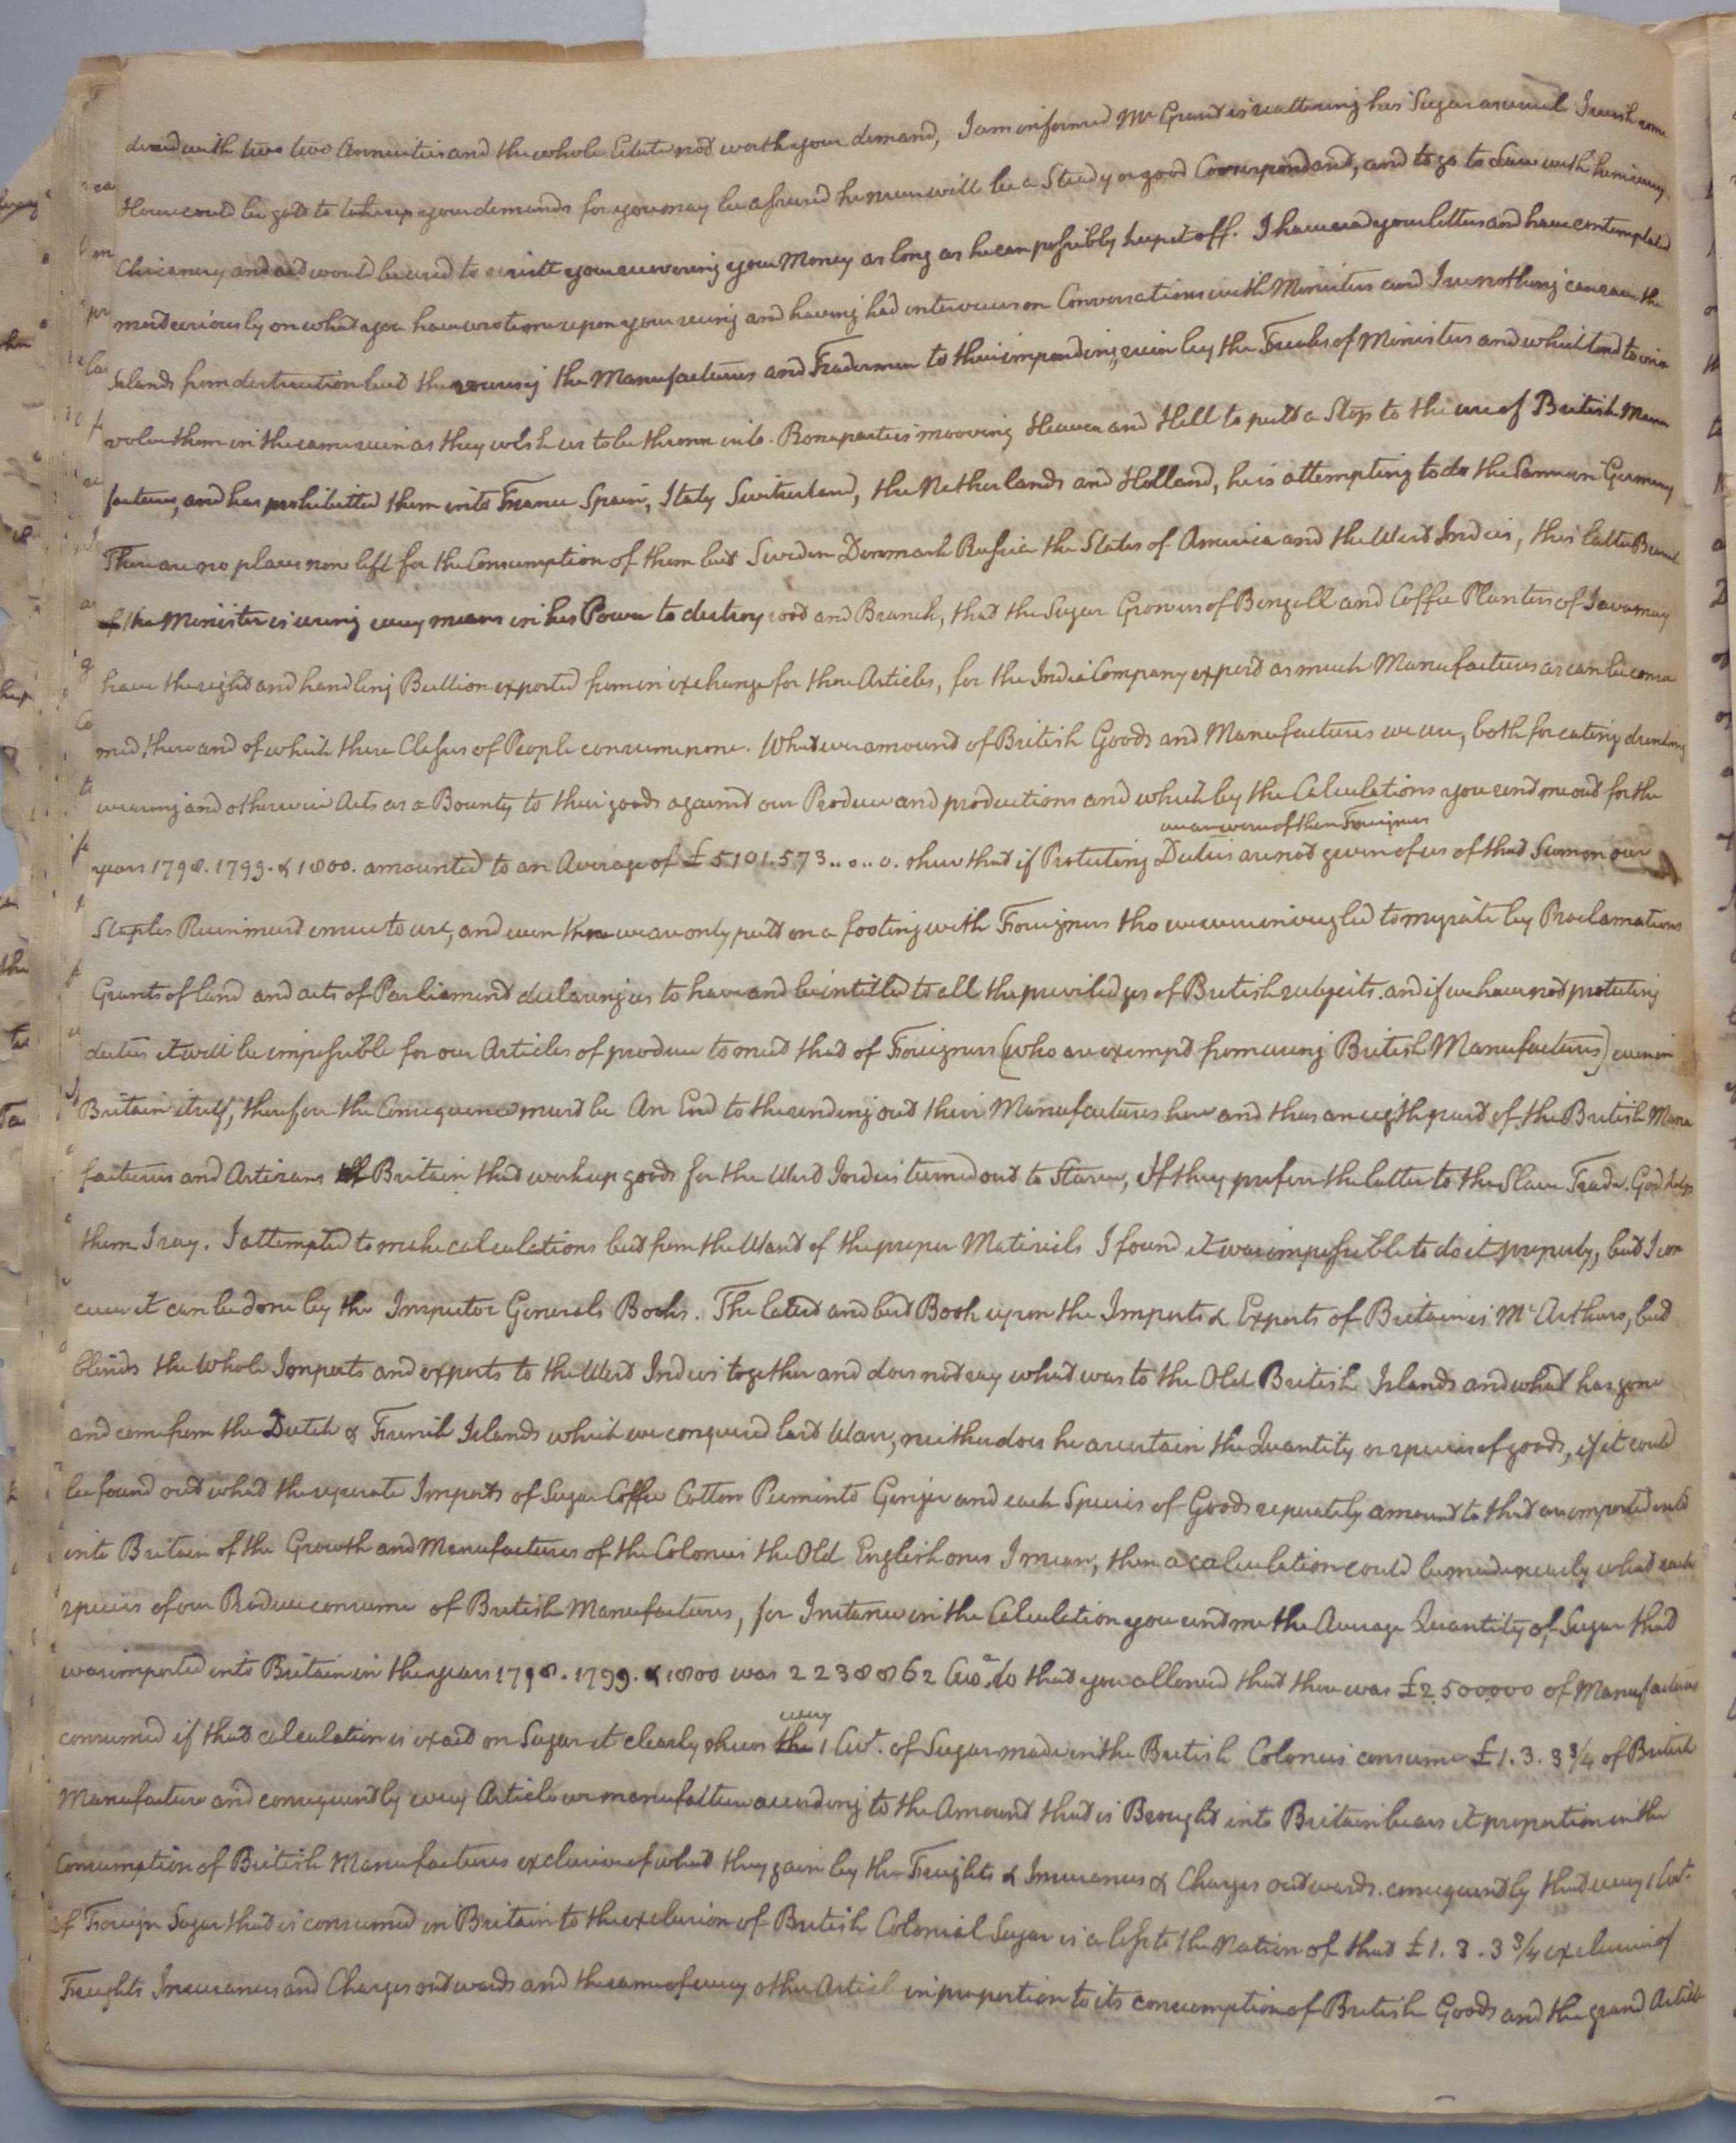 dened with two two Annuities and the whole Estate not worth your demand, I am informed Mr Grant is scattering his Sugar as usual I wish some
House could be gott to take up your demands for you may be assured he never will be a Steady or good Correspondant, and to go to Law with him every
Chicanery and art would be used to your recovering your Money as long as he can possibly keep it off. I have read your letters and have contemplated
most seriously on what you have wrote me upon your seeing and having had interviews on Conversations with Ministers and I see nothing can save the
Islands from destruction but the rousing the Manufacturers and Tradesmen to their impending ruin by the Freaks of Ministers and which tend to in
volve them in the same ruin as they wish us to be thrown into. Bonaparte is mooving Heaven and Hell to putt a Stop to the use of British Manu
factures, and has prohibitted them into France Spain, Italy Switzerland, the Netherlands and Holland, he is attempting to do the Same in Germany
There are no places now left for the Consumption of them but Sweden Denmark Russia the States of America and the West Indies, this latter Branch
of the Minister is using every means in his Power to destroy root and Branch, that the Sugar Growers of Bengall and Coffee Planters of Java may
have the right and handling Bullion exported from in exchange for those Articles, for the India Company export as much Manufactures as can be consu
med there and of which these Classes of People consume none. Whatever amount of British Goods and Manufactures we use, both for eating drinking
wearing and otherwise Acts as a Bounty to their goods against our Produce and productions and which by the Calculations you sent me out for the
years 1798. 1799. & 1800. amounted to an Average of £5101.573..0..0. shew that if Protecting Duties are not given of us of that Sum on our
Staples Ruin must ensue to us, and even then we are only putt on a footing with Foreigners tho we were inveigled to migrate by Proclamations
Grants of land and acts of Parliament declaring us to have and be intitled to all the priviledges of British subjects. and if we have not protecting
duties it will be impossible for our Articles of produce to meet that of Foreigners (who are exempt from using British Manufactures) even in
Britain itself, therefore the Consequence must be An End to the sending out their Manufactures here and thus an eighth part of the British Manu
factures and Artizans of Britain that work up goods for the West Indies turned out to Starve, If they prefer the latter to the Slave Trade. God help
them I say. I attempted to make calculations but from the Want of the proper Materials I found it was impossible to do it properly, but I con
ceive it can be done by the Inspector Generals Books. The latest and best Book upon the Imports & Exports of Britain is McArthurs, but
blinds the Whole Imports and exports to the West Indies together and does not say what was to the Old British Islands and what has gone
and come from the Dutch & French Islands which we conquered last Warr, neither does he ascertain the Quantity or species of goods, if it could
be found out what the seperate Imports of Sugar Coffee Cotton Piemento Ginger and each Species of Goods seperately amount to that are imported
into Britain of the Growth and Manufactures of the Colonies the Old English ones I mean, then a calculation could be made nearly what each
species of our Produce consume of British Manufactures, for Instance in the Calculation you sent me the Average Quantity of Sugar that
was imported into Britain in the years 1798. 1799. & 1800 was 2238862 Cwt. to that you allowed that there was £2500000 of Manufactures
consumed if that calculation is exact on Sugar it clearly shews every 1 Cwt. of Sugar made in the British Colonies consume £1.3.3¾ of British
Manufacture and consequently every Article we manufacture according to the Amount that is Brought into Britain bears it proportion in the
Consumption of British Manufactures exclusive of what they gain by the Freights & Insurances & Charges outwards. consequently that every 1 Cwt.
of Foreign Sugar that is consumed in Britain to the exclusion of British Colonial Sugar is a loss to the Nation of that £1.3.3¾ exclusive of
Freights Insurances and Charges outwards and the same of every other Article in proportion to its consumption of British Goods and the grand Article